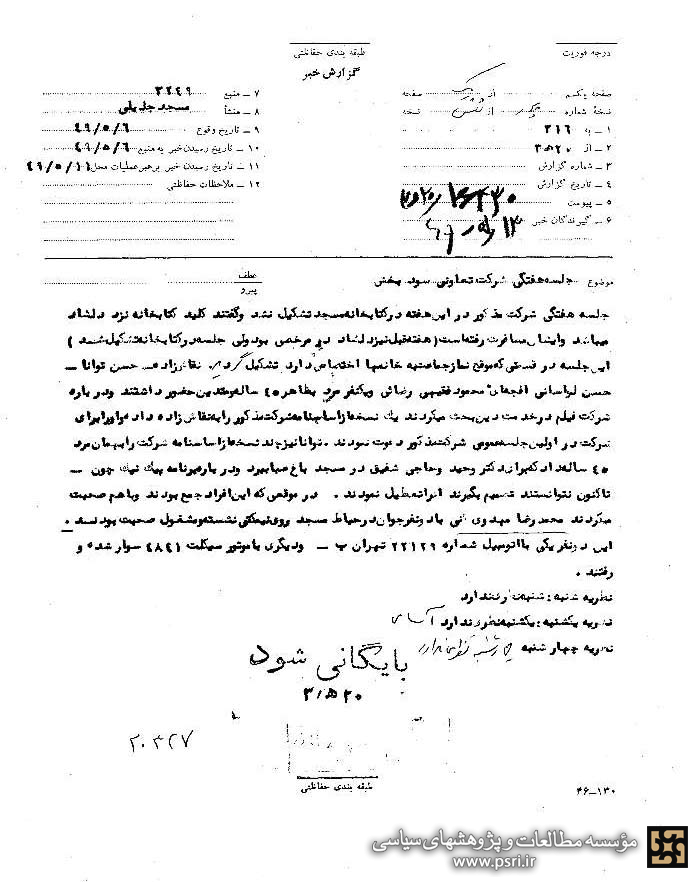 درجه فوریت
طبقه بندی حفاظتی
گزارش خبر
صفحه یکم از یک صفحه
نسخهٔ شماره از نسخه
۱ ـ به ۳۱۶
۲ ـ از ۲۰ ه ۳
۳ ـ شماره گزارش
۴ ـ تاریخ گزارش
۵ ـ پیوست
۶ ـ گیرندگان خبر
۷ ـ منبع ۳۲۴۹
۸ ـ منشأ مسجد جلیلی
۹ ـ تاریخ وقوع ۴۹/۵/۶
۱۰ ـ تاریخ رسیدن خبر به منبع ۴۹/۵/۶
۱۱ ـ تاریخ رسیدن خبر برهبر عملیات محل ۴۹/۵/۱۱
۱۲ ـ ملاحظات حفاظتی
موضوع جلسه هفتگی شرکت تعاونی سود بخش
عطف
پیرو
جلسه هفتگی شرکت مذکور در این هفته در کتابخانه مسجد تشکیل نشد و گفتند کلید کتابخانه نزد دلشاد
میباشد و ایشان مسافرت رفته است ( هفته قبل نیز دلشاد در مرخصی بود ولی جلسه در کتابخانه تشکیل شد )
این جلسه در قسمتی که موقع نماز جماعت به خانمها اختصاص دارد تشکیل گردید نقاش زاده ـ حسن توانا ـ
حسن لواسانی افجه‌ای محمود فقیهی رضائی و یکنفر مرد بظاهر ۴۵ ساله متدین حضور داشتند و درباره
شرکت فیلم در خدمت دین بحث میکردند یک نسخه از اساسنامه شرکت مذکور را به نقاش زاده داد و او را برای
شرکت در اولین جلسه عمومی شرکت مذکور دعوت نمودند . توانا نیز چند نسخه از اساسنامه شرکت را بهمان مرد
۴۵ ساله داد که برای دکتر وحید و حاجی شفیق در مسجد باغ صبا ببرد و درباره برنامه پیک نیک چون ـ
تاکنون نتوانستند تصمیم بگیرند امر را تعطیل نمودند . در موقعی که این افراد جمع بودند و باهم صحبت
میکردند محمد رضا مهدوی کنی با دو نفر جوان در حیاط مسجد روی نیمکتی نشسته و مشغول صحبت بودند .
این دو نفر یکی با اتومبیل شماره ۲۲۱۲۹ تهران ب ـ و دیگری با موتور سیکلت ۴۸۴۱ سوار شده و
رفتند .
نظریه شنبه : شنبه نظری ندارد
نظریه یکشنبه : یکشنبه نظری ندارد
نظریه چهار شنبه چهارشنبه نظری ندارد
بایگانی شود
۲۰ ه ۳
۲۰۳۲۷
طبقه بندی حفاظتی
۴۶-۱۳۰
مؤسسه مطالعات و پژوهشهای سیاسی
www.psri.ir